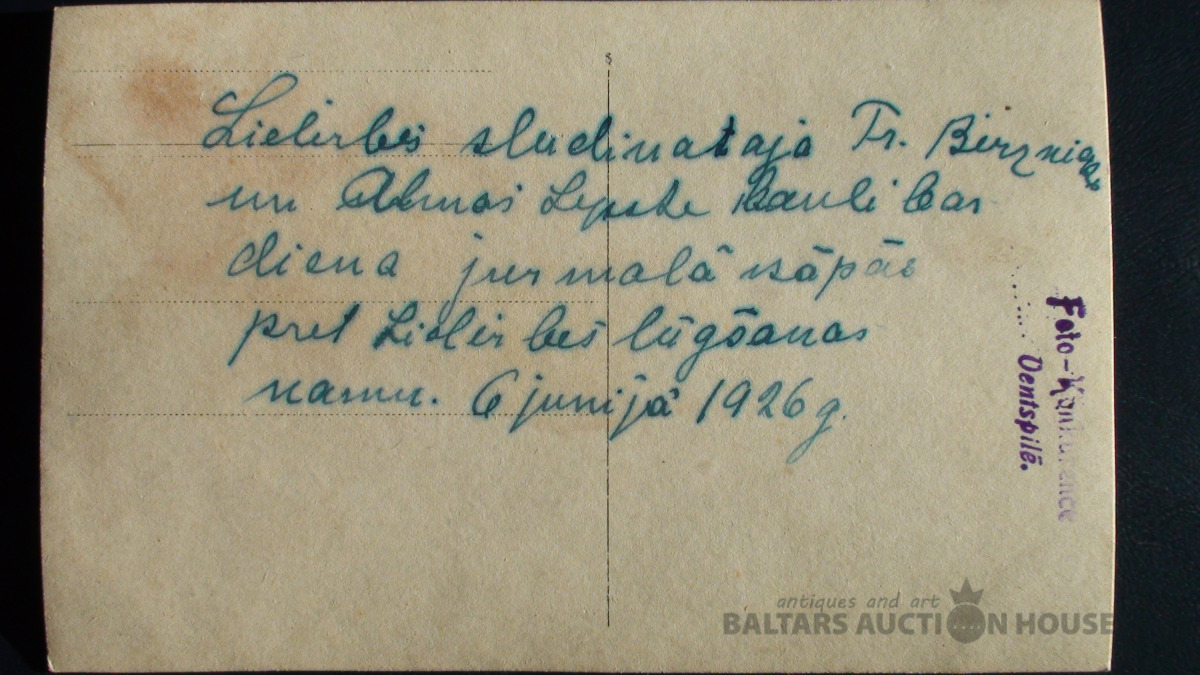 Lielirbes sludinataja Fr. Birznieks
un Almas Lepste kaulibas
diena jurmalā kāpās
pret Lielirbes lūgšanas
namu. 6 junijā 1926 g.
Foto-Konkurence
Ventspilē.
antiques and art
BALTARS AUCTION HOUSE